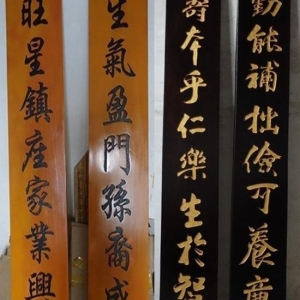 勤能補拙儉可養
壽本乎仁樂生於智
生氣盈門孫裔
旺星鎮座家業興